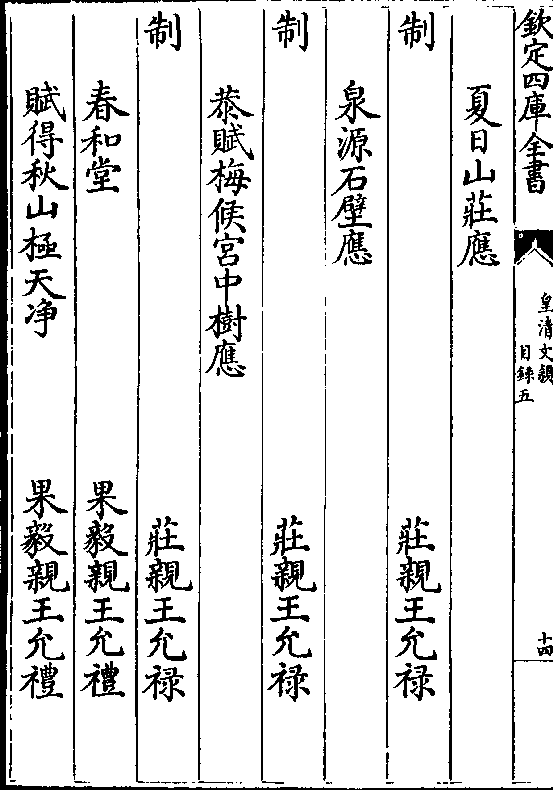 欽定四庫全書
皇清文穎
目録五
十四
夏日山莊應
制 莊親王允禄
泉源石壁應
制 莊親王允禄
恭賦梅候宮中樹應
制 莊親王允禄
春和堂 果毅親王允禮
賦得秋山極天净 果毅親王允禮